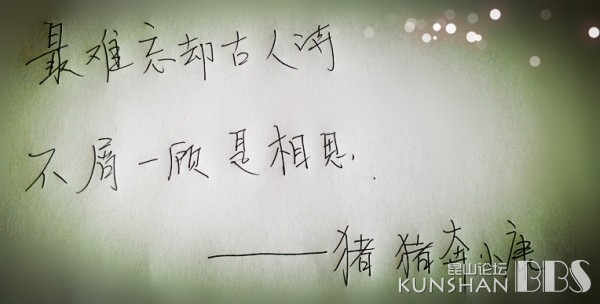 最难忘却古人诗
不屑一顾是相思.
——猪猪奔小康
昆山论坛
KUNSHAN BBS